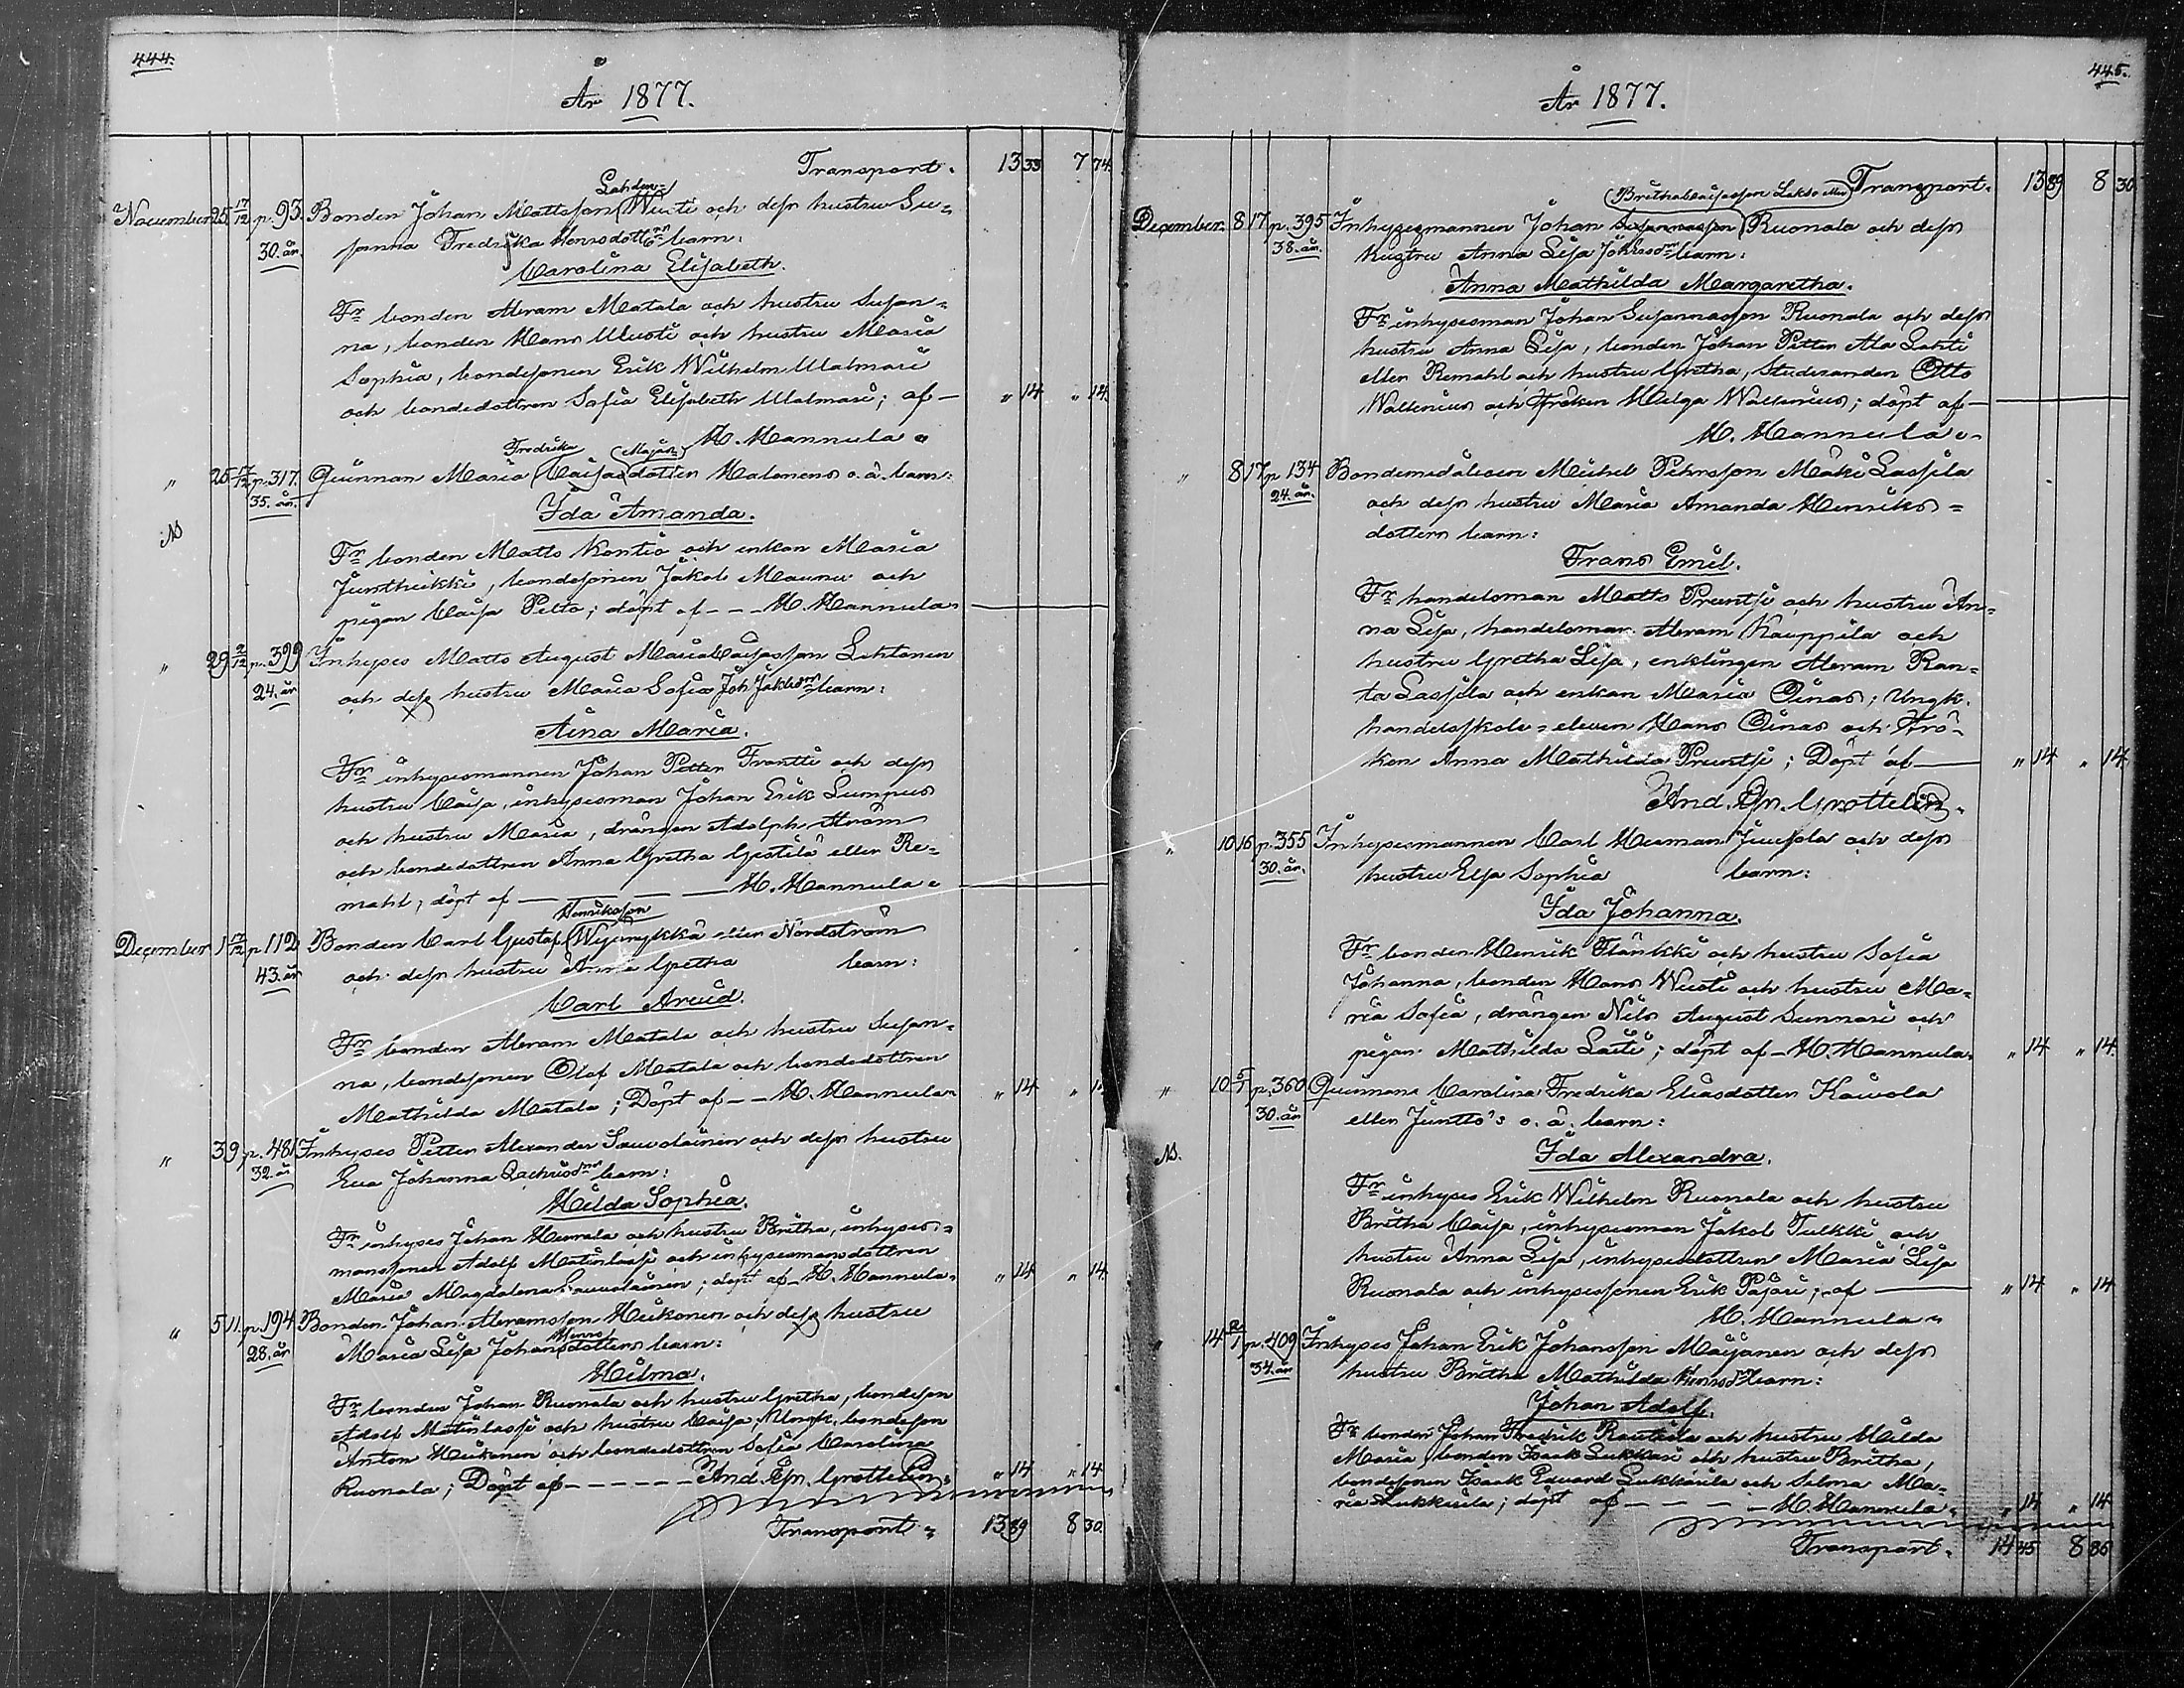 444.
År 1877.
Transport. 13 33 7 74.
Lahden-
November 25 17/12 p. 93. Bonden Johan Mattsson Uusti och dess hustru Su-
30. år. sanna Fredrika Hansdotters barn:
Carolina Elisabeth.
Fr bonden Abram Matala och hustru Susan-
na, bonden Hans Uusti och hustru Maria
Sophia, bondesonen Erik Wilhelm Ulalmari
och bondedottren Sofia Elisabeth Ulalmari; af — " 14 " 14.
H. Hannula.
Fredrika Majas
" 25 17/12 p. 317. Quinnan Maria Caisasdotter Halonens o. ä. barn:
35. år.
Ida Amanda.
N
Fr bonden Matts Kontio och enkan Maria
Juntheikki, bondesonen Jakob Maunu och
pigan Caisa Pelto; döpt af - - - H. Hannula.
" 29 2/12 p. 399 Inhyses Matts August MariaCaisasson Lehtonen
24. år och dess hustru Maria Sofia Joh Jakobsdr barn:
Aina Maria.
Fr inhysesmannen Johan Petter Frantti och dess
hustru Caisa, inhysesman Johan Erik Lumpus
och hustru Maria, drängen Adolph Abram
och bondedottren Anna Gretha Gestilä eller Re-
mahl, döpt af — H. Hannula.
Henriksson
December 1 17/12 p. 112 Bonden Carl Gustaf Nordström
43. år och dess hustru Anna Gretha barn:
Carl Arvid.
Fr bonden Abram Matala och hustru Susan-
na, bondesonen Olof Matala och bondedottren
Mathilda Matala; Döpt af - - H. Hannula. " 14 " 14
" 3 9 p. 481 Inhyses Petter Alexander Sauvolainen och dess hustru
32. år Eva Johanna Zachrisdr barn:
Hilda Sophia.
Fr inhyses Johan Heurala och hustru Britha, inhyses-
manssonen Adolf Matinlassi och inhysesmansdottren
Maria Magdalena Sauvolainen; döpt af - H. Hannula. " 14 " 14.
" 5 11. p. 194 Bonden Johan Abramsson Heikonen och dess hustru
28. år Maria Lisa Johansdotters barn:
Hilma.
Fr bonden Johan Ruonala och hustru Gretha, bondeson
Adolf Matinlassi och hustru Caisa; Ungk. bondeson
Anton Heikonen och bondedottren Sofia Carolina
Ruonala; Döpt af - - - - - And. Gr. Grottelin. " 14 " 14
Transport. 13 89 8 30.
445.
År 1877.
Transport. 13 89 8 30.
December. 8 17 p. 395 Inhysesmannen Johan Susannasson Ruonala och dess
38. år. hustru Anna Lisa Johansdr barn:
Anna Mathilda Margaretha.
Fr inhysesman Johan Susannasson Ruonala och dess
hustru Anna Lisa, bonden Johan Petter Ala Lahti
eller Remahl och hustru Gretha, Studeranden Otto
Wallenius och Fröken Helga Wallenius; döpt af —
H. Hannula.
" 8 17 p 134 Bondemågen Michel Pehrsson Mäki Lassila
24. år. och dess hustru Maria Amanda Henriks-
dotters barn:
Frans Emil.
Fr handelsman Matts Pruntsi och hustru An-
na Lisa, handelsman Abram Kauppila och
hustru Gretha Lisa, enklingen Abram Ran-
ta Lassila och enkan Maria Oinas; Ungk.
handelsskole-eleven Hans Oinas och Frö-
ken Anna Mathilda Pruntsi; Döpt af — " 14 " 14
And. Gr. Grottelin.
" 10 16 p. 355 Inhysesmannen Carl Herman Juusola och dess
30. år. hustru Elsa Sophia barn:
Ida Johanna.
Fr bonden Henrik Flänkki och hustru Sofia
Johanna, bonden Hans Uusti och hustru Ma-
ria Sofia, drängen Nils August Sunnari och
pigan Mathilda Laiti; döpt af - H. Hannula. " 14 " 14.
" 10 5/1 p. 360 Quinnans Carolina Fredrika Eliasdotter Kaivola
30. år eller Juntto's o. ä. barn:
N.
Ida Alexandra.
Fr inhyses Erik Wilhelm Ruonala och hustru
Britha Caisa, inhysesman Jakob Tulkki och
hustru Anna Lisa, inhysesdottren Maria Lisa
Ruonala och inhysessonen Erik Pajari; af — " 14 " 14
H. Hannula.
14 p. 409 Inhyses Johan Erik Johansson Maijanen och dess
34. år. hustru Britha Mathilda Hansdr barn:
Johan Adolf.
Fr bonden Johan Fredrik Rautiola och hustru Hilda
Maria, bonden Isaak Lukkari och hustru Britha,
bondesonen Isaak Edvard Lukkarila och Selma Ma-
ria Lukkarila; döpt af - - - - H. Hannula. " 14 " 14
Transport. 14 45 8 86